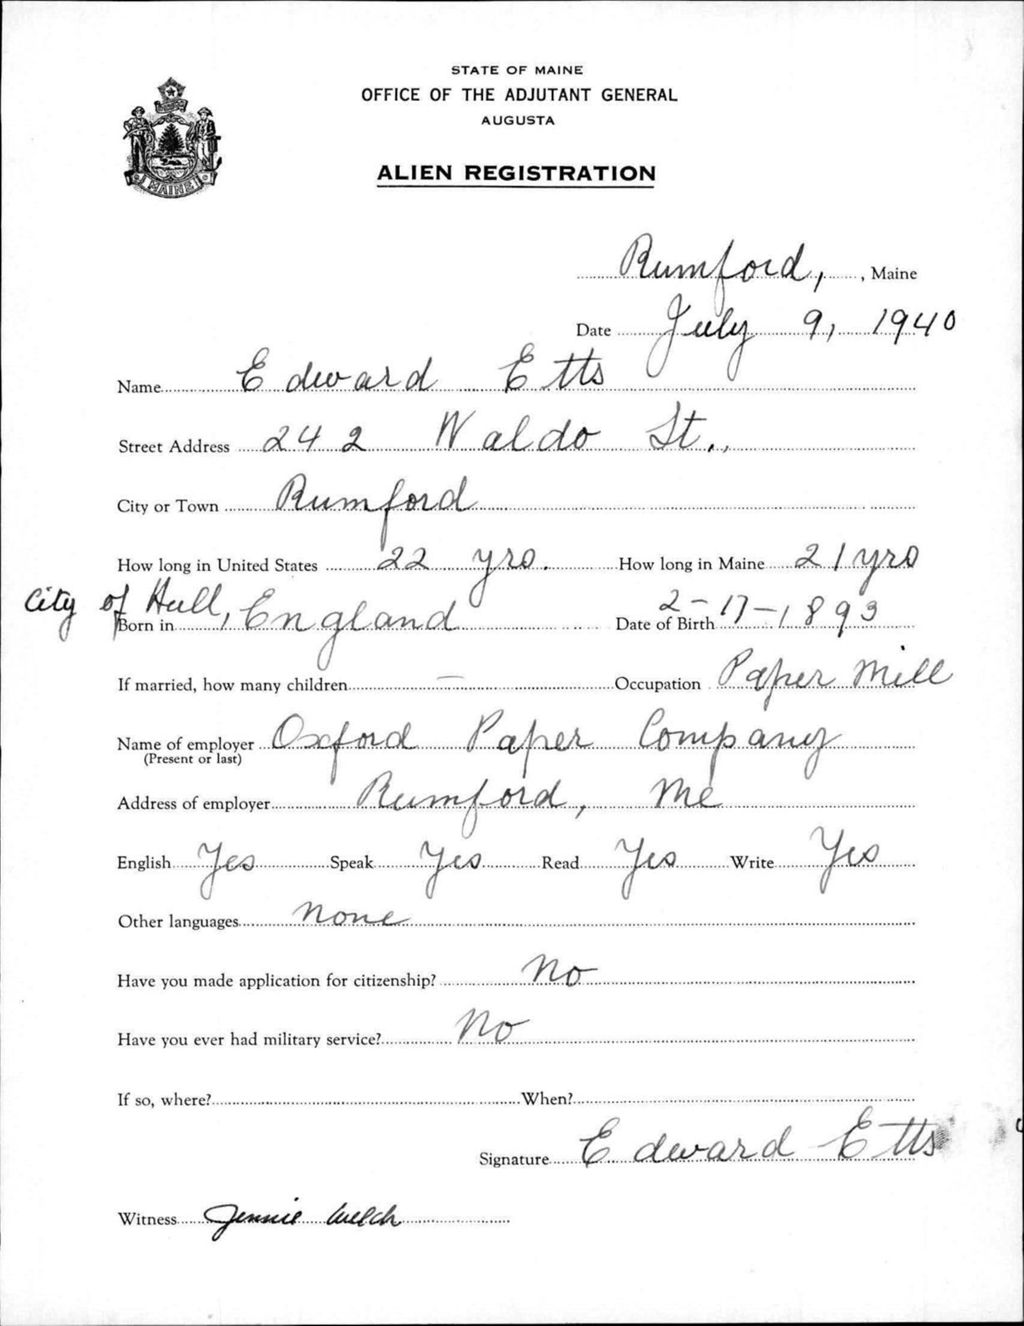 STATE OF MAINE
OFFICE OF THE ADJUTANT GENERAL
AUGUSTA
MAINE
ALIEN REGISTRATION
Rumford, , Maine
Date July 9, 1940
Name Edward Etts
Street Address 242 Waldo St.,
City or Town Rumford
How long in United States 22 yrs. How long in Maine 21 yrs
City of Hull,
Born in England Date of Birth 2-17-1893
If married, how many children — Occupation Paper Mill
Name of employer Oxford Paper Company
(Present or last)
Address of employer Rumford, Me
English Yes Speak Yes Read Yes Write Yes
Other languages None
Have you made application for citizenship? No
Have you ever had military service? No
If so, where? When?
Signature Edward Etts
Witness Jennie Welch